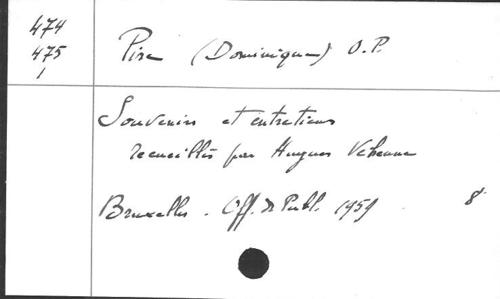 474
475
1
Pire (Dominique) O.P.
Souvenirs et entretiens
recueillis par Hugues Vehenne
Bruxelles. Off. de Publ. 1959 8°